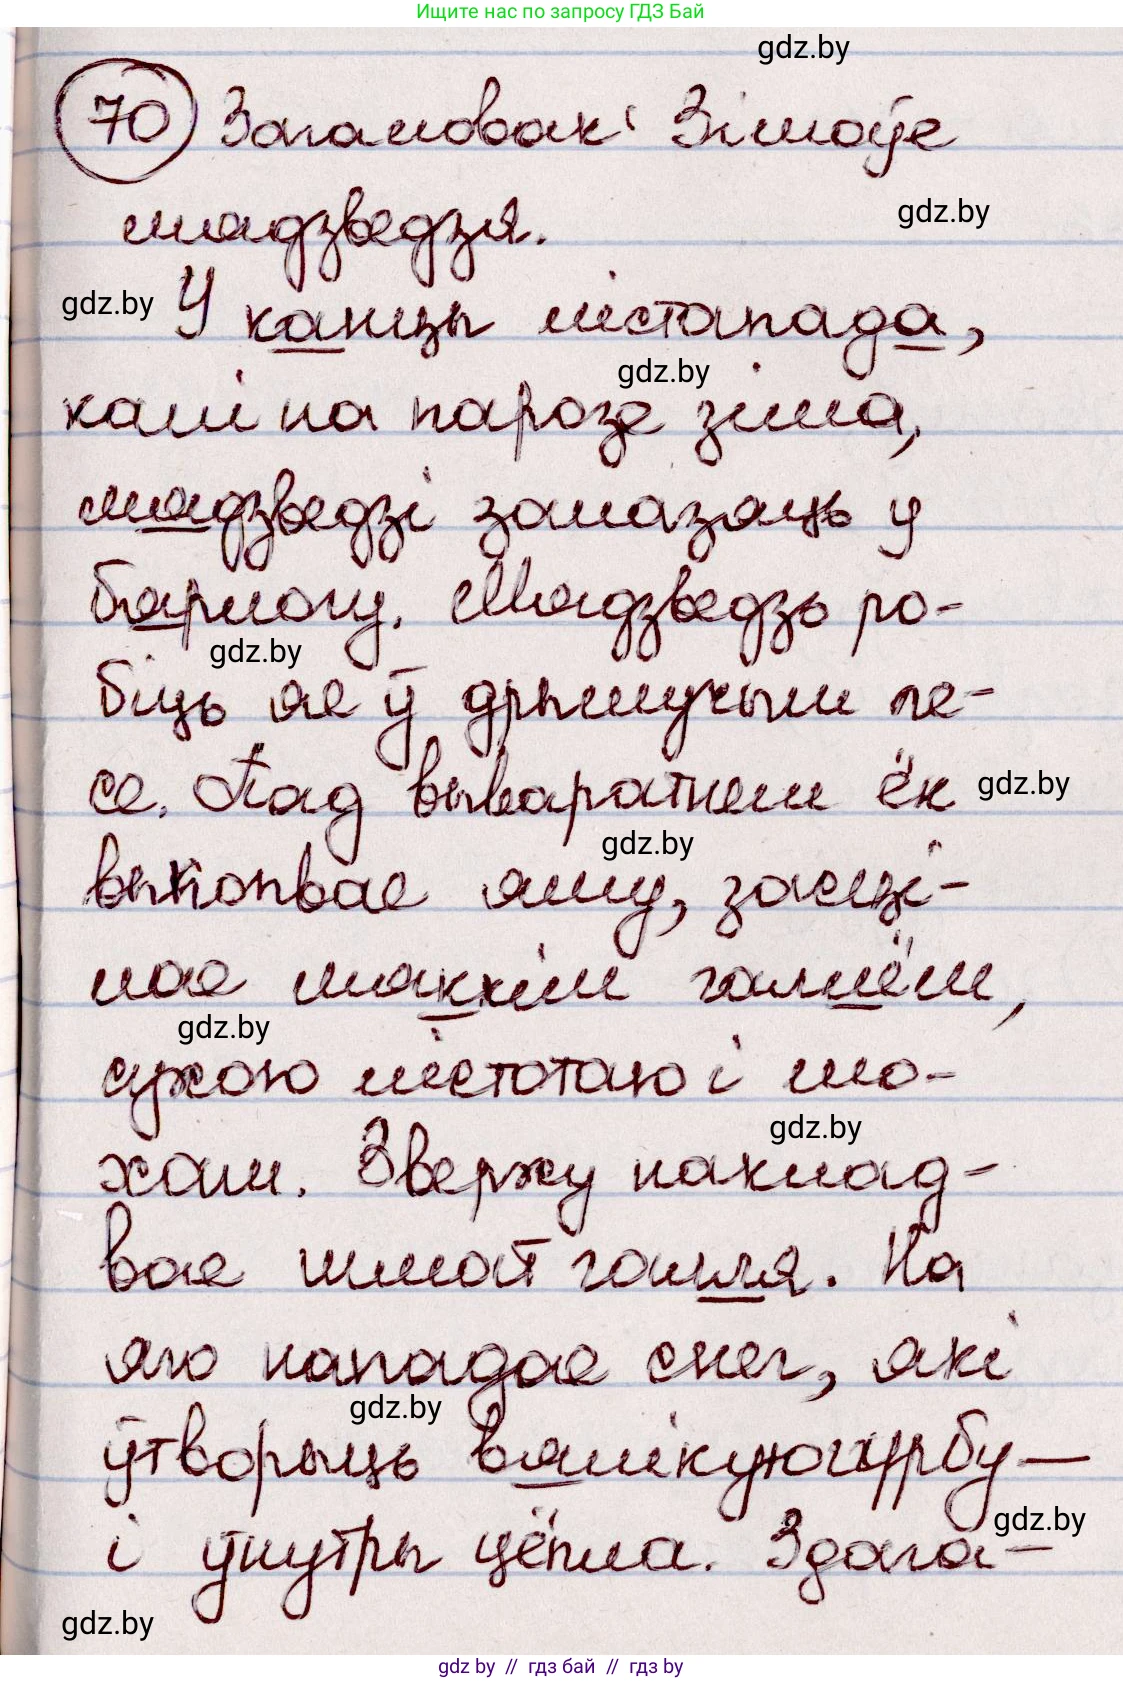 Ищите нас по запросу ГДЗ Бай
gdz.by
70 Загаловак: Зімоўе
gdz.by
мядзведзя.
gdz.by
У канцы лістапада,
gdz.by
калі на парозе зіма,
мядзведзі залазяць у
бярлогу. Мядзведзь ро-
gdz.by
біць яе ў дрымучым ле-
се. Пад вываратнем ён
gdz.by
gdz.by
выкопвае яму, засці-
лае мяккім галлём,
gdz.by
сухою лістотаю і мо-
gdz.by
хам. Зверху накла­д-
вае шмат галля. На
яго нападае снег, які
gdz.by
ўтворыць вялікую гурбу —
gdz.by
і ўнутры цёпла. Здага-
gdz.by
gdz by // гдз бай // гдз by